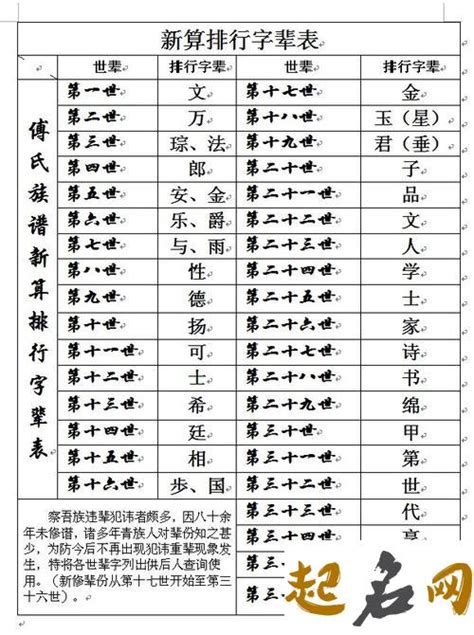 新算排行字辈表
世辈 排行字辈 世辈 排行字辈
傅氏族谱新算排行字辈表
第一世 文 第十七世 金
第二世 万 第十八世 玉（星）
第三世 琮、法 第十九世 君（垂）
第四世 郎 第二十世 子
第五世 安、金 第二十一世 品
第六世 乐、爵 第二十二世 文
第七世 与、雨 第二十三世 人
第八世 性 第二十四世 学
第九世 德 第二十五世 士
第十世 扬 第二十六世 家
第十一世 可 第二十七世 诗
第十二世 士 第二十八世 书
第十三世 希 第二十九世 绵
第十四世 廷 第三十世 甲
第十五世 相 第三十一世 第
第十六世 步、国 第三十二世 世
第三十三世 代
第三十四世 享
察吾族违辈犯讳者颇多，因八十余
年未修谱，诸多年青族人对辈份知之甚
少，为防今后不再出现犯讳重辈现象发
生，特将各世辈字列出供后人查询使
用。（新修辈份从第十七世开始至第三
十六世）。
起名网